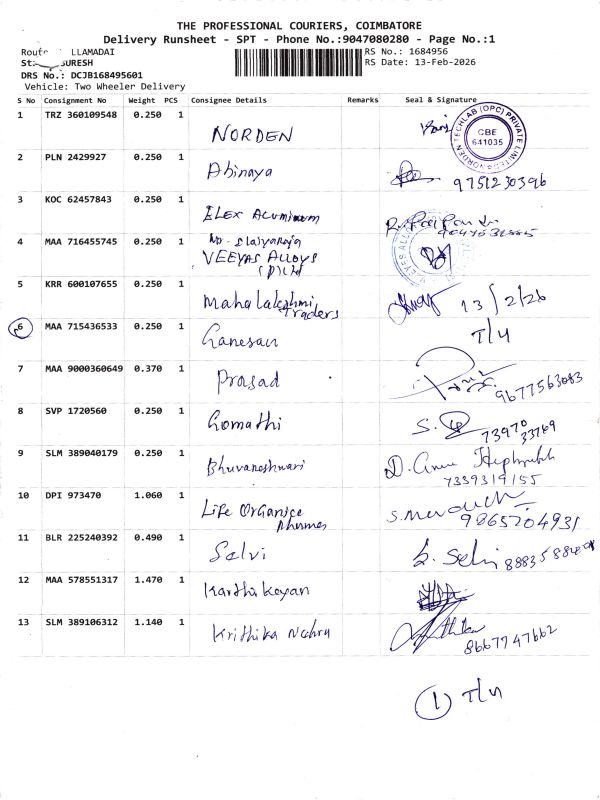 THE PROFESSIONAL COURIERS, COIMBATORE
Delivery Runsheet - SPT - Phone No.:9047080280 - Page No.:1
LLAMADAI
RS No.: 1684956
SURESH
RS Date: 13-Feb-2026
DRS No.: DCJB168495601
Vehicle: Two Wheeler Delivery
S No Consignment No Weight PCS Consignee Details Remarks Seal & Signature
1 TRZ 360109548 0.250 1 NORDEN
NORDEN TECHLAB (OPC) PRIVATE LIMITED
CBE
641035
2 PLN 2429927 0.250 1 Abinaya 9751230396
3 KOC 62457843 0.250 1 ELEX Aluminum
4 MAA 716455745 0.250 1
VEEYAS ALLOYS
(P) Ltd
5 KRR 600107655 0.250 1 Mahalakshmi 13/2/26
Traders
6 MAA 715436533 0.250 1 Ganesan T/4
7 MAA 9000360649 0.370 1 Prasad 9677563083
8 SVP 1720560 0.250 1 Gomathi S.
73970
33769
9 SLM 389040179 0.250 1 Bhuvaneshwari D.
7339319155
10 DPI 973470 1.060 1 Life Organice
9865204931
11 BLR 225240392 0.490 1 Selvi
12 MAA 578551317 1.470 1 Karthikeyan
13 SLM 389106312 1.140 1 Krithika Nehru
8667747662
1 T/4